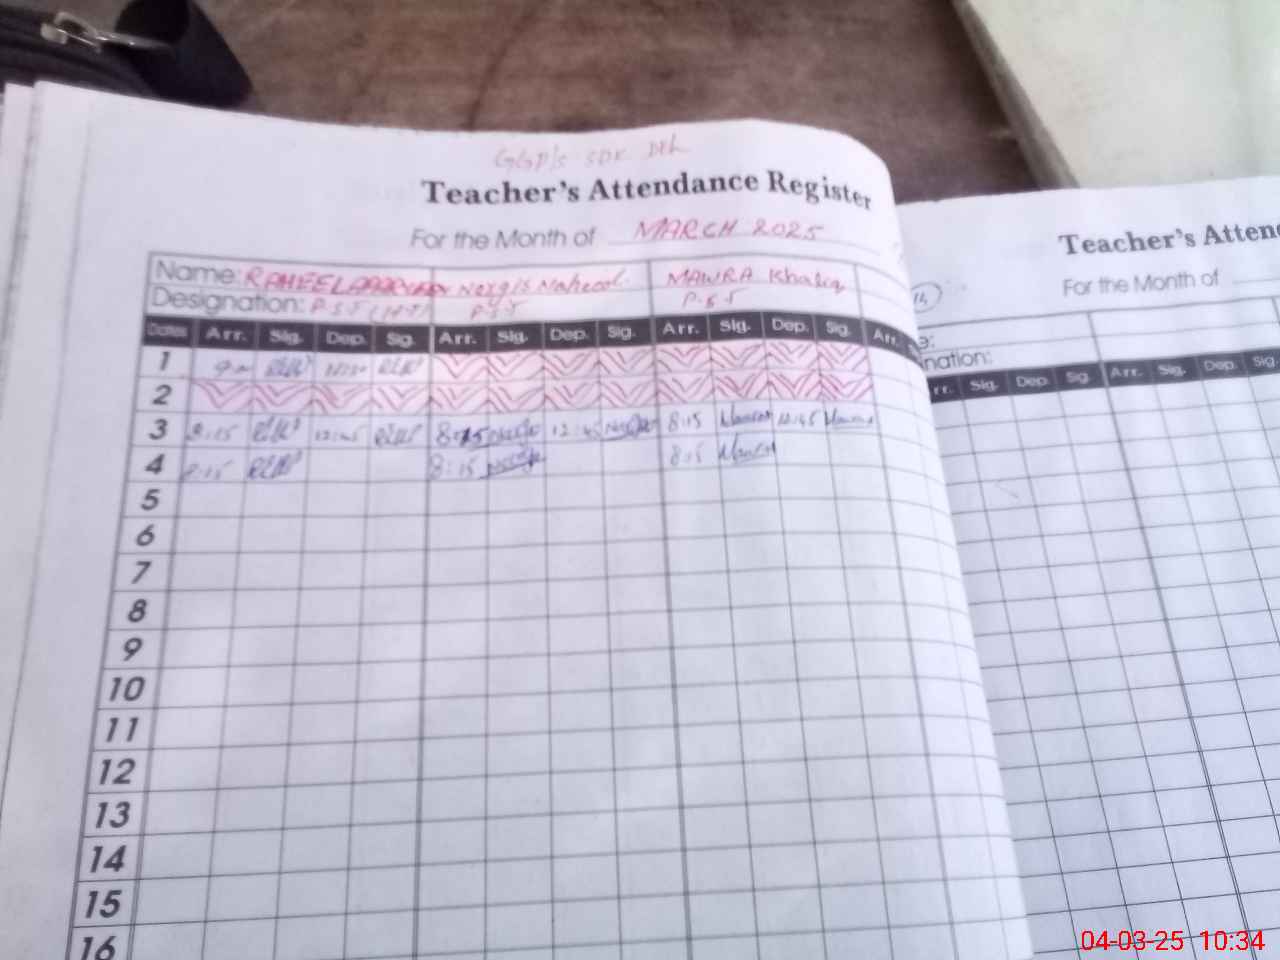 GGP/S SDK
Teacher's Attendance Register
For the Month of MARCH 2025
Name: RAHEELA Nergis Naheed MAWRA Khaliq
Designation: P.S.T P.S.T P.S.T
Dates Arr. Sig. Dep. Sig. Arr. Sig. Dep. Sig. Arr. Sig. Dep. Sig. Arr.
1
2
3 8:15 12:45 8:15 12:45 8:15 12:45
4 8:15 8:15 8:15
5
6
7
8
9
10
11
12
13
14
15
16
Teacher's Atten
For the Month of
e:
nation:
rr. Sig. Dep. Sig. Arr. Sig. Dep. Sig.
04-03-25 10:34